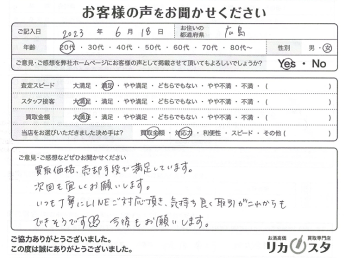 お客様の声をお聞かせください
ご記入日 2023 年 6 月 18 日 お住いの都道府県 広島
年齢 20代・30代・40代・50代・60代・70代・80代〜 性別 男・女
ご意見・ご感想を弊社ホームページにお客様の声として掲載させて頂いてもよろしいでしょうか? Yes・No
査定スピード 大満足・満足・やや満足・どちらでもない・やや不満・不満・( )
スタッフ接客 大満足・満足・やや満足・どちらでもない・やや不満・不満・( )
買取金額 大満足・満足・やや満足・どちらでもない・やや不満・不満・( )
当店をお選びいただきました決め手は? 買取金額・対応力・利便性・スピード・その他( )
ご意見・ご感想などぜひお聞かせください
買取価格、売却手段で満足しています。
次回も宜しくお願いします。
いつも丁寧にLINEご対応頂き、気持ち良く取引がこれからも
できそうです 今後もお願いします。
ご協力ありがとうございました。
この度は誠にありがとうございました。
お酒高価 買取専門店
リカスタ